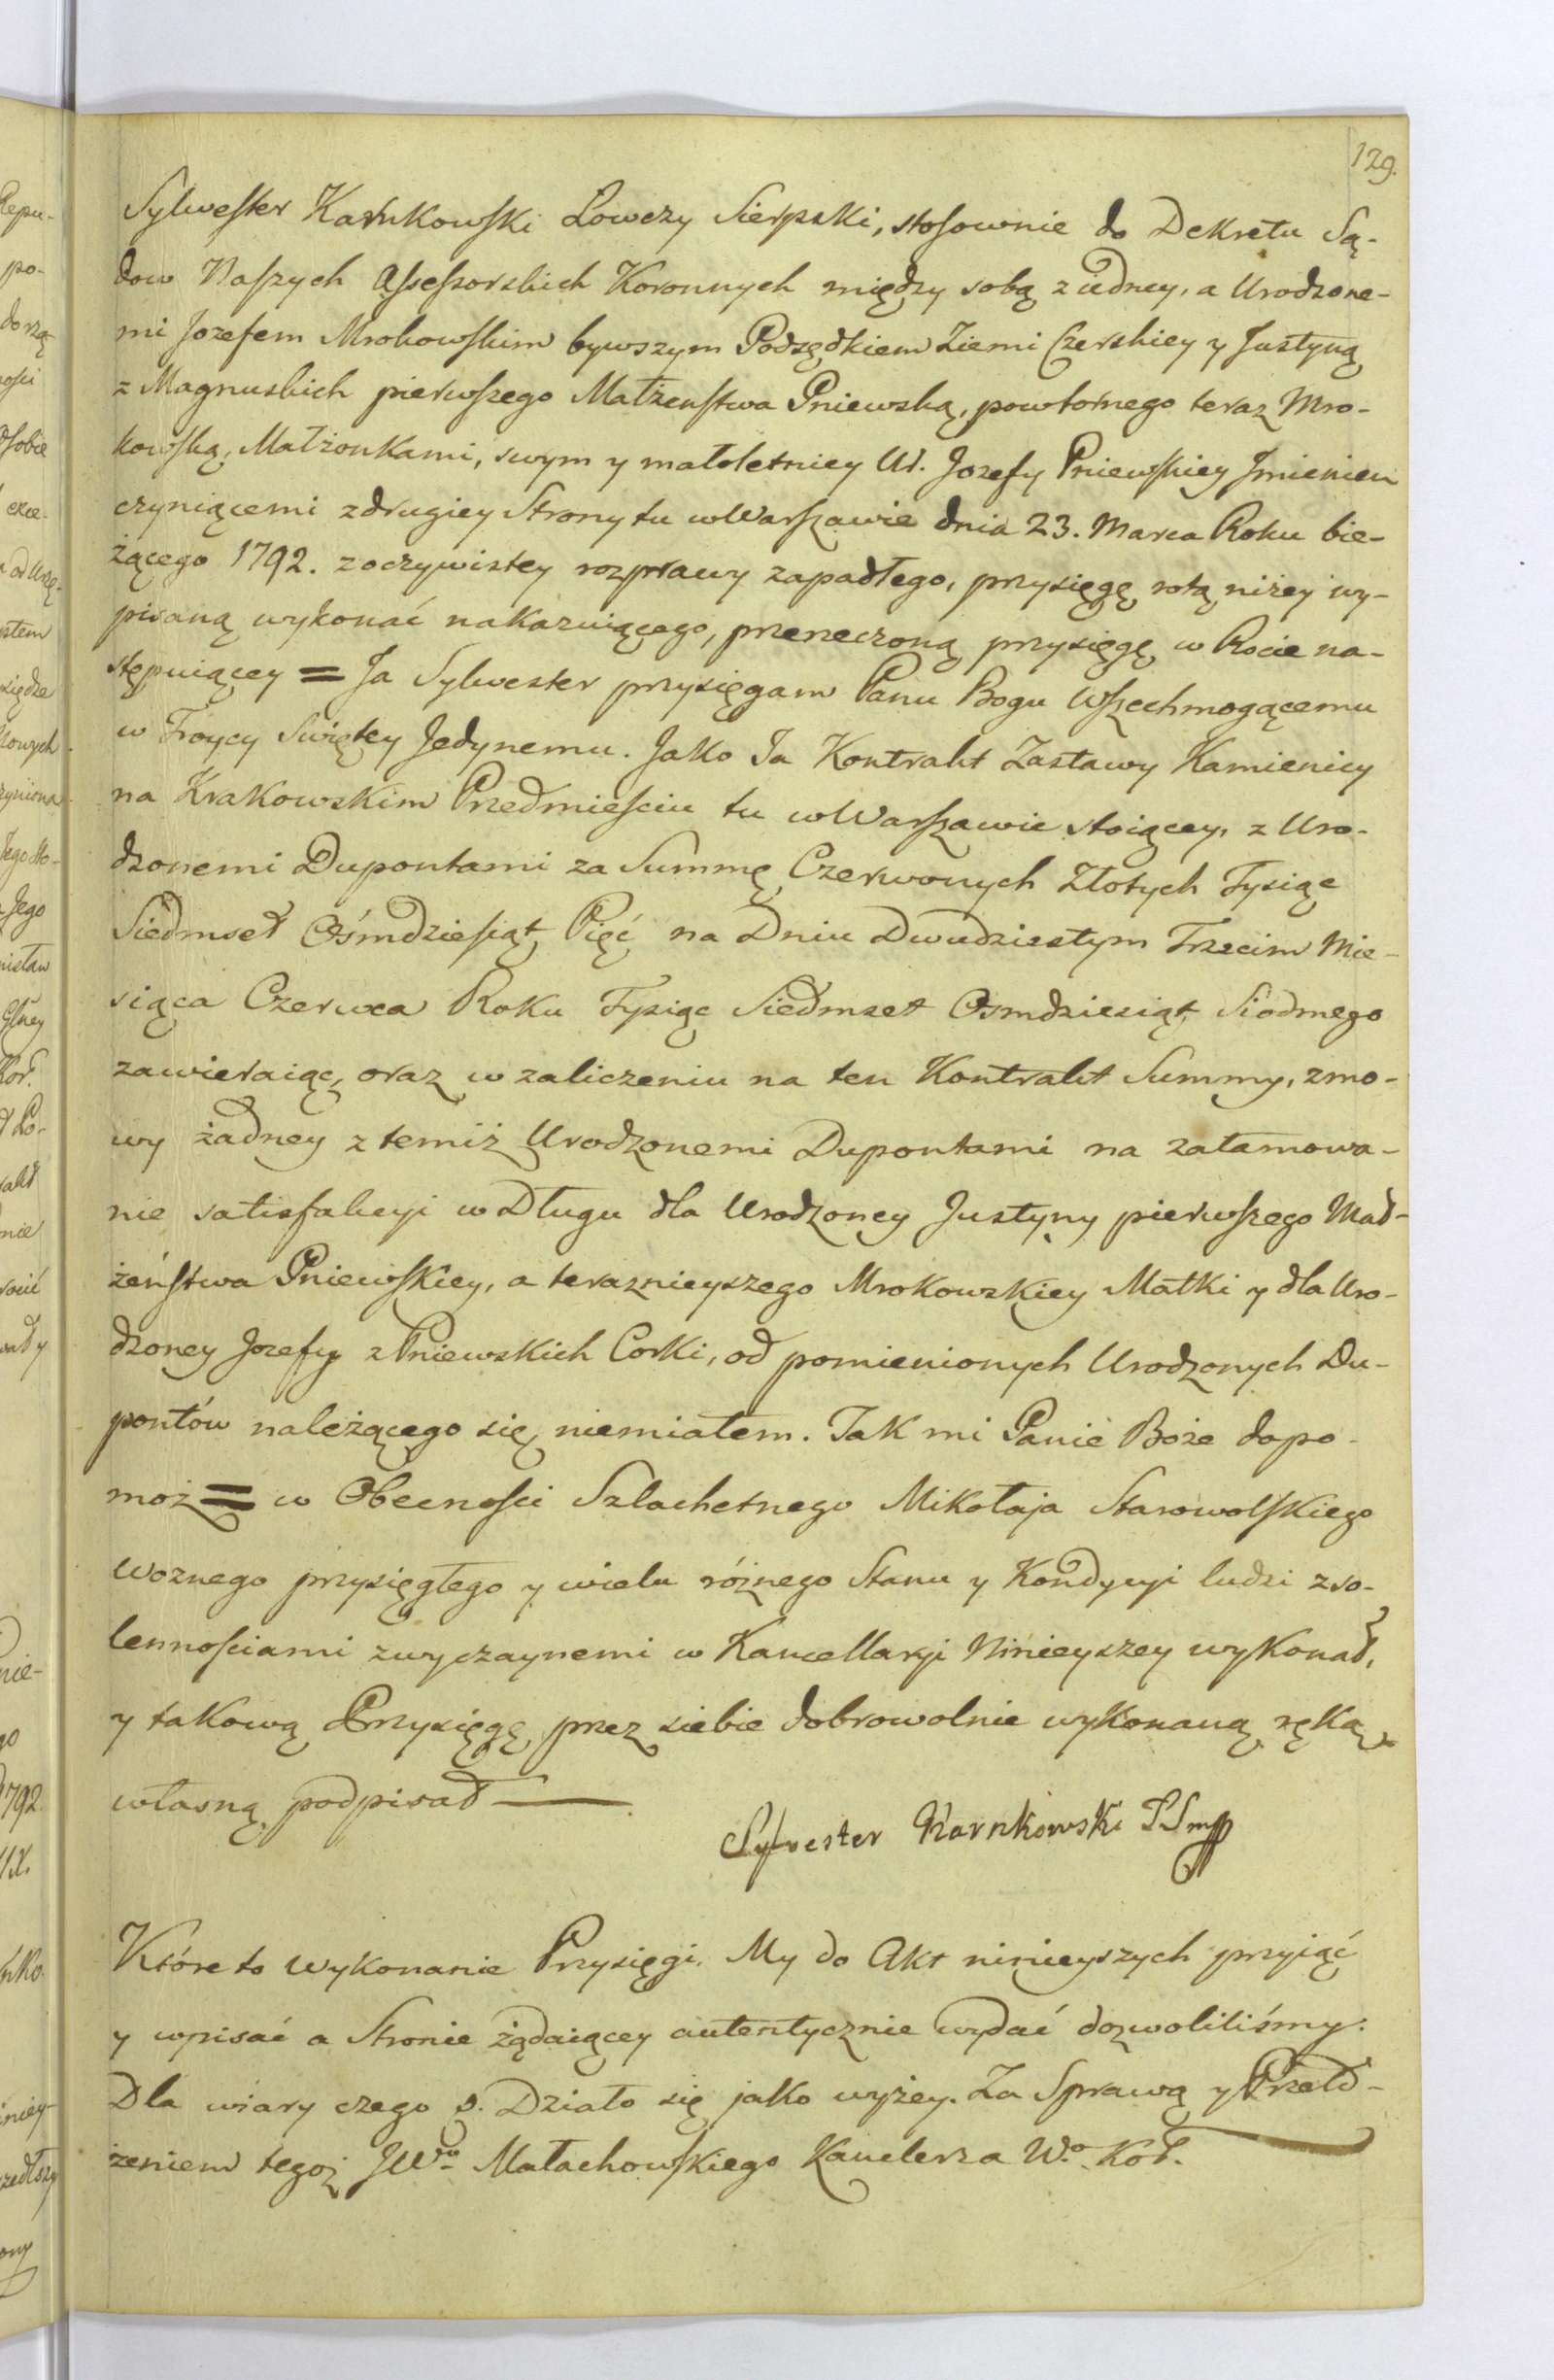 129.
Sylwester Karnkowski Łowczy Sierpski, stosownie do Dekretu Są-
dow Naszych Assessorskich Koronnych między sobą z iedney, a Urodzone-
mi Jozefem Mrokowskim bywszym Podsędkiem Ziemi Czerskiey y Justyną
z Magnuskich pierwszego Małżenstwa Pniewską, powtornego teraz Mro-
kowską, Małżonkami, swym y małoletniey Ur. Jozefy Pniewskiey Jmieniem
czyniącemi z drugiey Strony tu w Warszawie dnia 23. Marca Roku bie-
żącego 1792. z oczywistey rozprawy zapadłego, przysięgę rotą niżey wy-
pisaną wykonać nakazuiącego, przerzeczoną przysięgę w Rocie na-
stępuiącey = Ja Sylwester przysięgam Panu Bogu Wszechmogącemu
w Troycy Swiętey Jedynemu. Jako Ja Kontrakt Zastawy Kamienicy
na Krakowskim Przedmieściu tu w Warszawie stoiącey, z Uro-
dzonemi Dupontami za Summę Czerwonych Złotych Tysiąc
Siedmset Ośmdziesiąt Pięć na Dniu Dwudziestym Trzecim Mie-
siąca Czerwca Roku Tysiąc Siedmset Osmdziesiąt Siodmego
zawieraiąc, oraz w zaliczeniu na ten Kontrakt Summy, zmo-
wy żadney z temiż Urodzonemi Dupontami na zatamowa-
nie satisfakcyi w Długu dla Urodzoney Justyny pierwszego Mał-
żeństwa Pniewskiey, a teraznieyszego Mrokowskiey Matki y dla Uro-
dzoney Jozefy z Pniewskich Corki, od pomienionych Urodzonych Du-
pontów należącego się, niemiałem. Tak mi Panie Boże dopo-
moż = w Obecności Szlachetnego Mikołaja Starowolskiego
Woznego przysięgłego y wielu różnego Stanu y Kondycyi ludzi z so-
lennościami zwyczaynemi w Kancellaryi Ninieyszey wykonał,
y takową Przysięgę przez siebie dobrowolnie wykonaną ręką
własną podpisał —
Sylvester Karnkowski mpp
Które to Wykonanie Przysięgi. My do Akt ninieyszych przyiąć
y wpisać a Stronie żądaiącey autentycznie wydać dozwoliliśmy.
Dla wiary czego s. Działo się jako wyżey. Za Sprawą y Przeło-
żeniem tegoż JWgo Małachowskiego Kanclerza Wo. Kor.